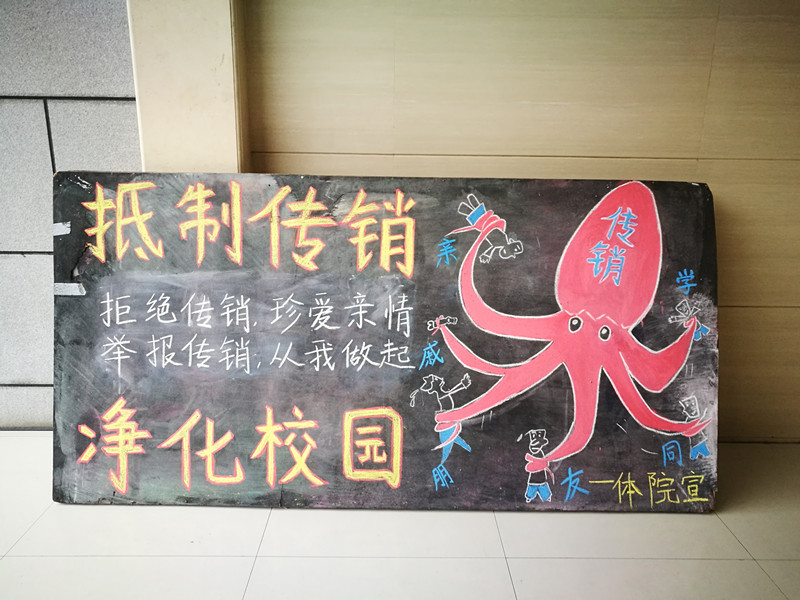 抵制传销
拒绝传销,珍爱亲情
举报传销,从我做起
净化校园
传销
亲
戚
朋
友
学
同
一体院宣